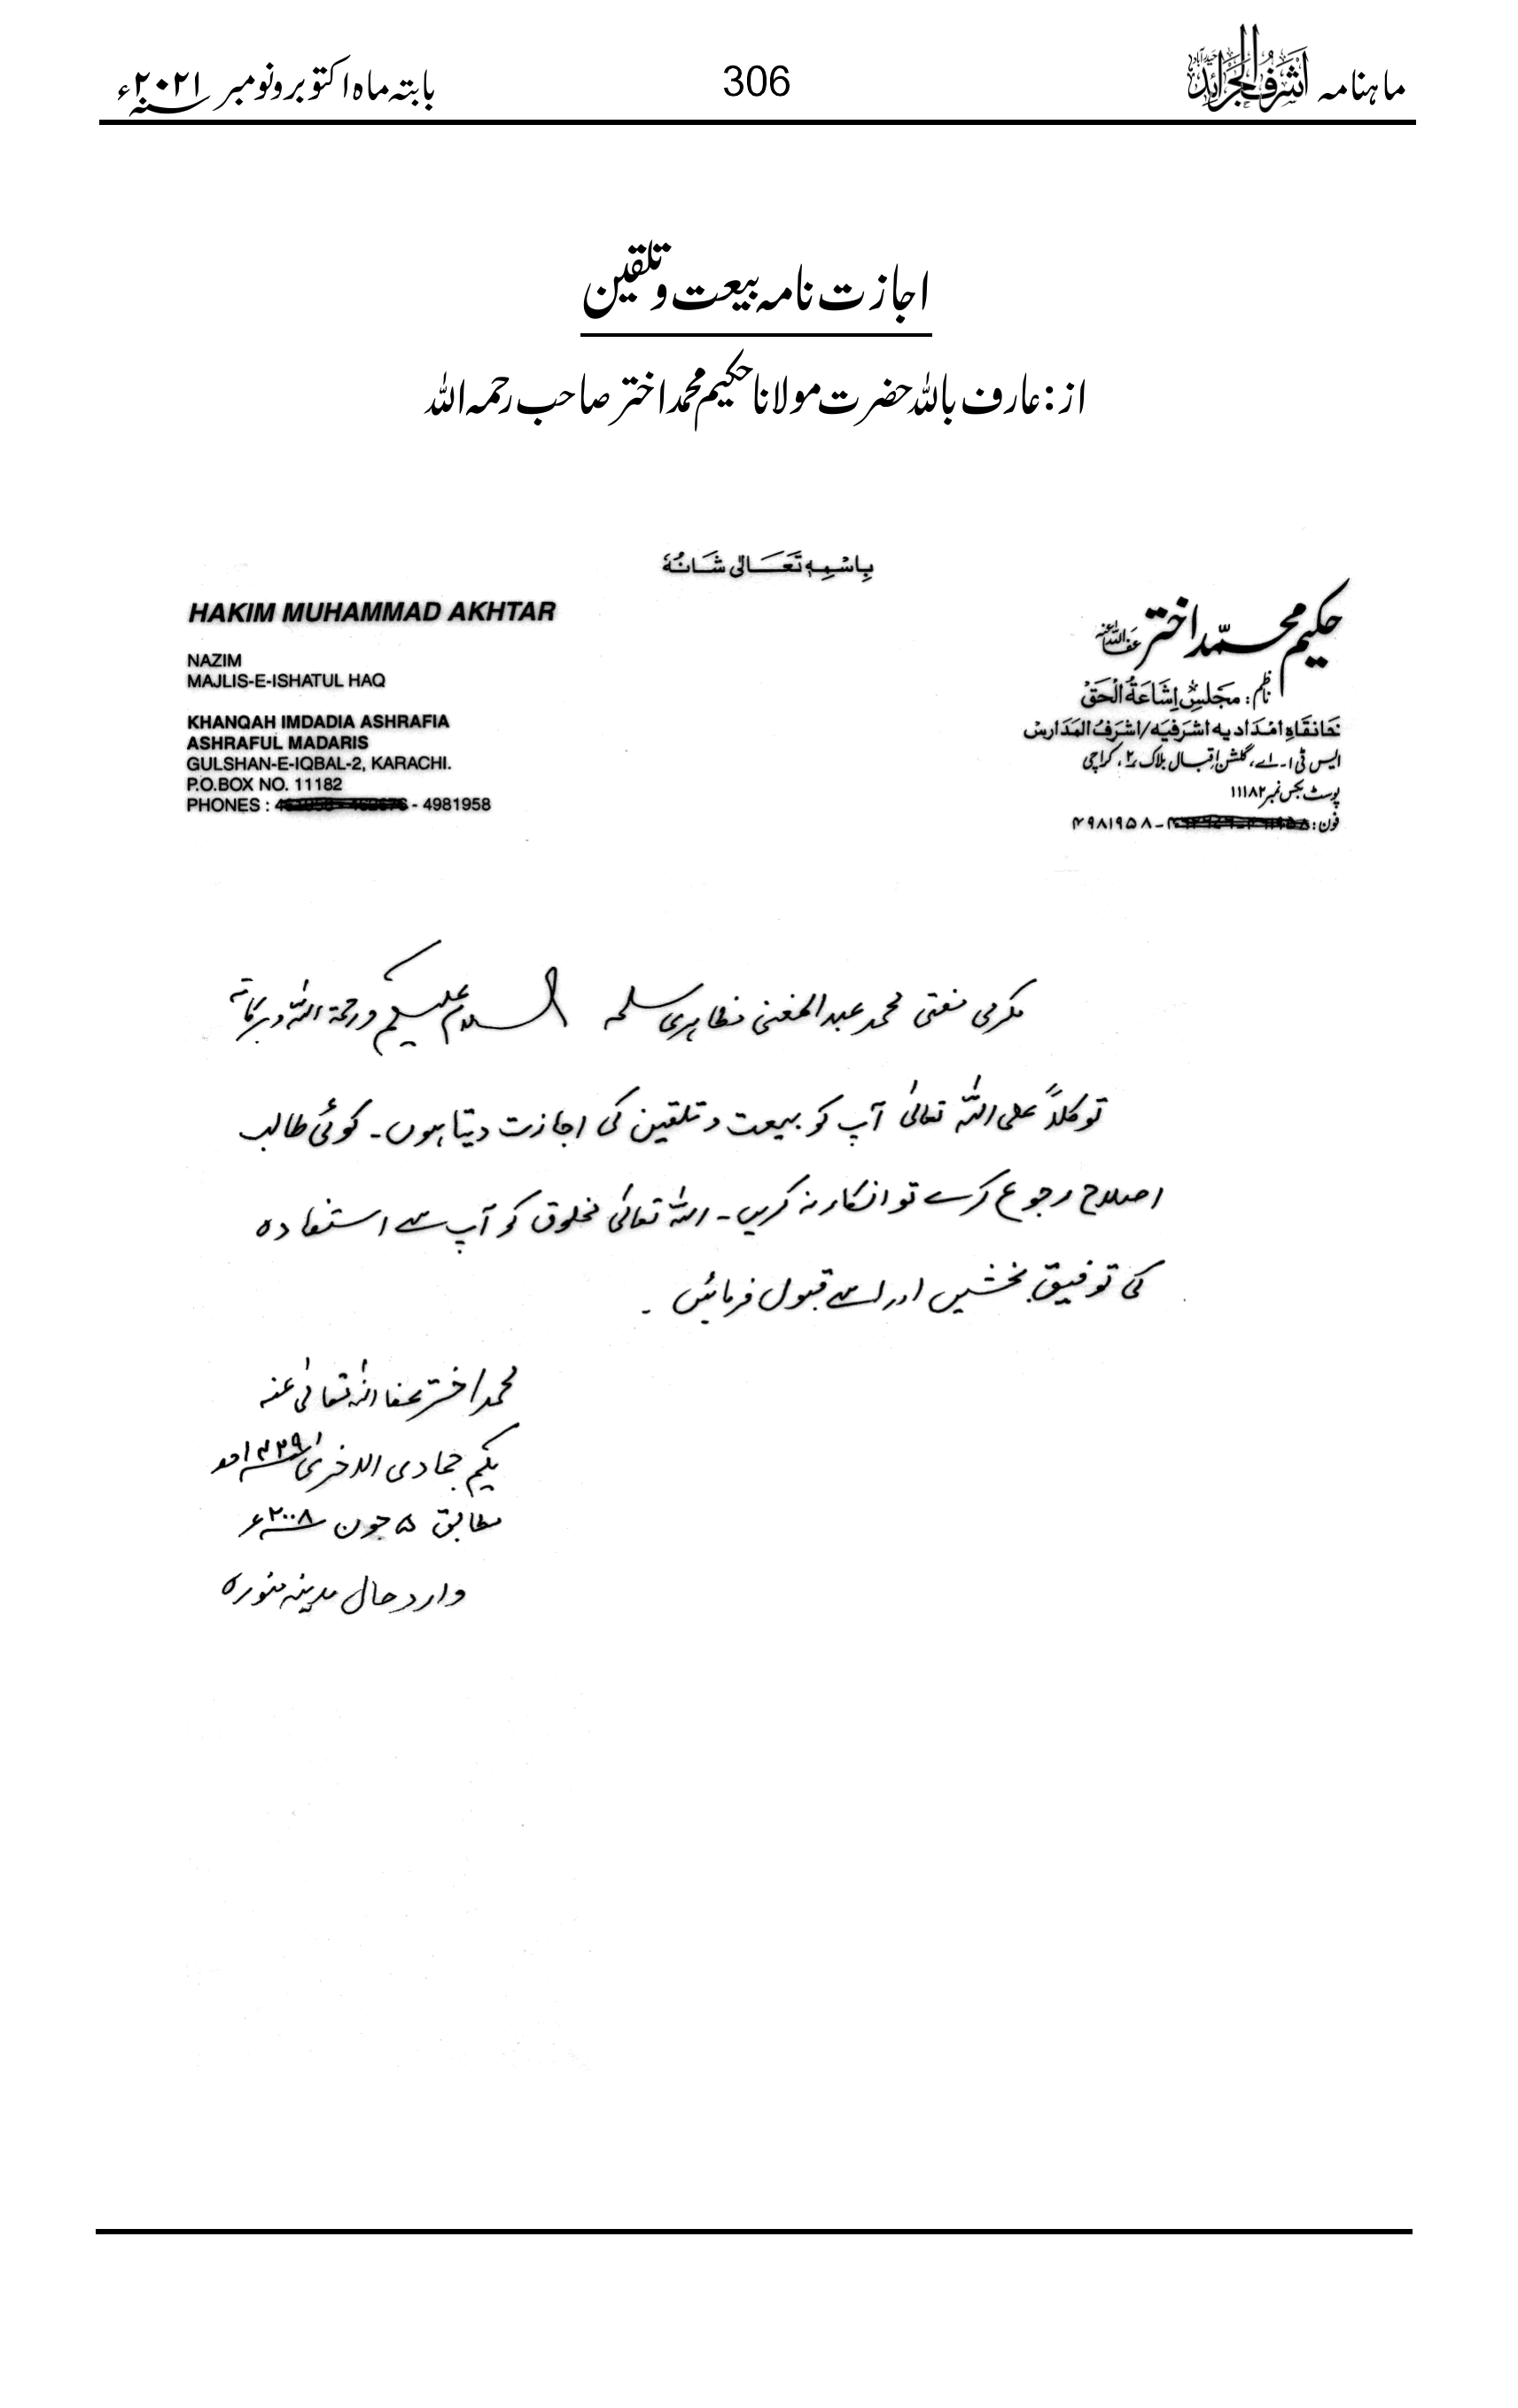 ماہنامہ اشرف الجرائد حیدرآباد
306
بابتہ ماہ اکتوبر و نومبر ۲۰۲۱ء
اجازت نامہ بیعت و تلقین
از: عارف باللہ حضرت مولانا حکیم محمد اختر صاحب رحمہ اللہ
بِاسْمِہٖ تَعَالٰی شَانُہٗ
HAKIM MUHAMMAD AKHTAR
NAZIM
MAJLIS-E-ISHATUL HAQ
KHANQAH IMDADIA ASHRAFIA
ASHRAFUL MADARIS
GULSHAN-E-IQBAL-2, KARACHI.
P.O.BOX NO. 11182
PHONES : - 4981958
حکیم محمّد اختر عفا اللہ عنہ
ناظم: مجلسِ اشاعۃ الحق
خانقاہِ امدادیہ اشرفیہ/اشرف المدارس
ایس ٹی ۱۔اے، گلشن اقبال بلاک ۲، کراچی
پوسٹ بکس نمبر ۱۱۱۸۲
فون: - ۴۹۸۱۹۵۸
مکرمی مفتی محمد عبد المغنی مظاہری سلمہ السلام علیکم ورحمۃ اللہ وبرکاتہ
توکلاً علی اللہ تعالیٰ آپ کو بیعت و تلقین کی اجازت دیتا ہوں۔ کوئی طالب
اصلاح رجوع کرے تو انکار نہ کریں۔ اللہ تعالیٰ مخلوق کو آپ سے استفادہ
کی توفیق بخشیں اور اسے قبول فرمائیں۔
محمد اختر عفا اللہ تعالیٰ عنہ
یکم جمادی الاخریٰ ۱۴۲۹ھ
مطابق ۵ جون ۲۰۰۸ء
وارد حال مدینہ منورہ